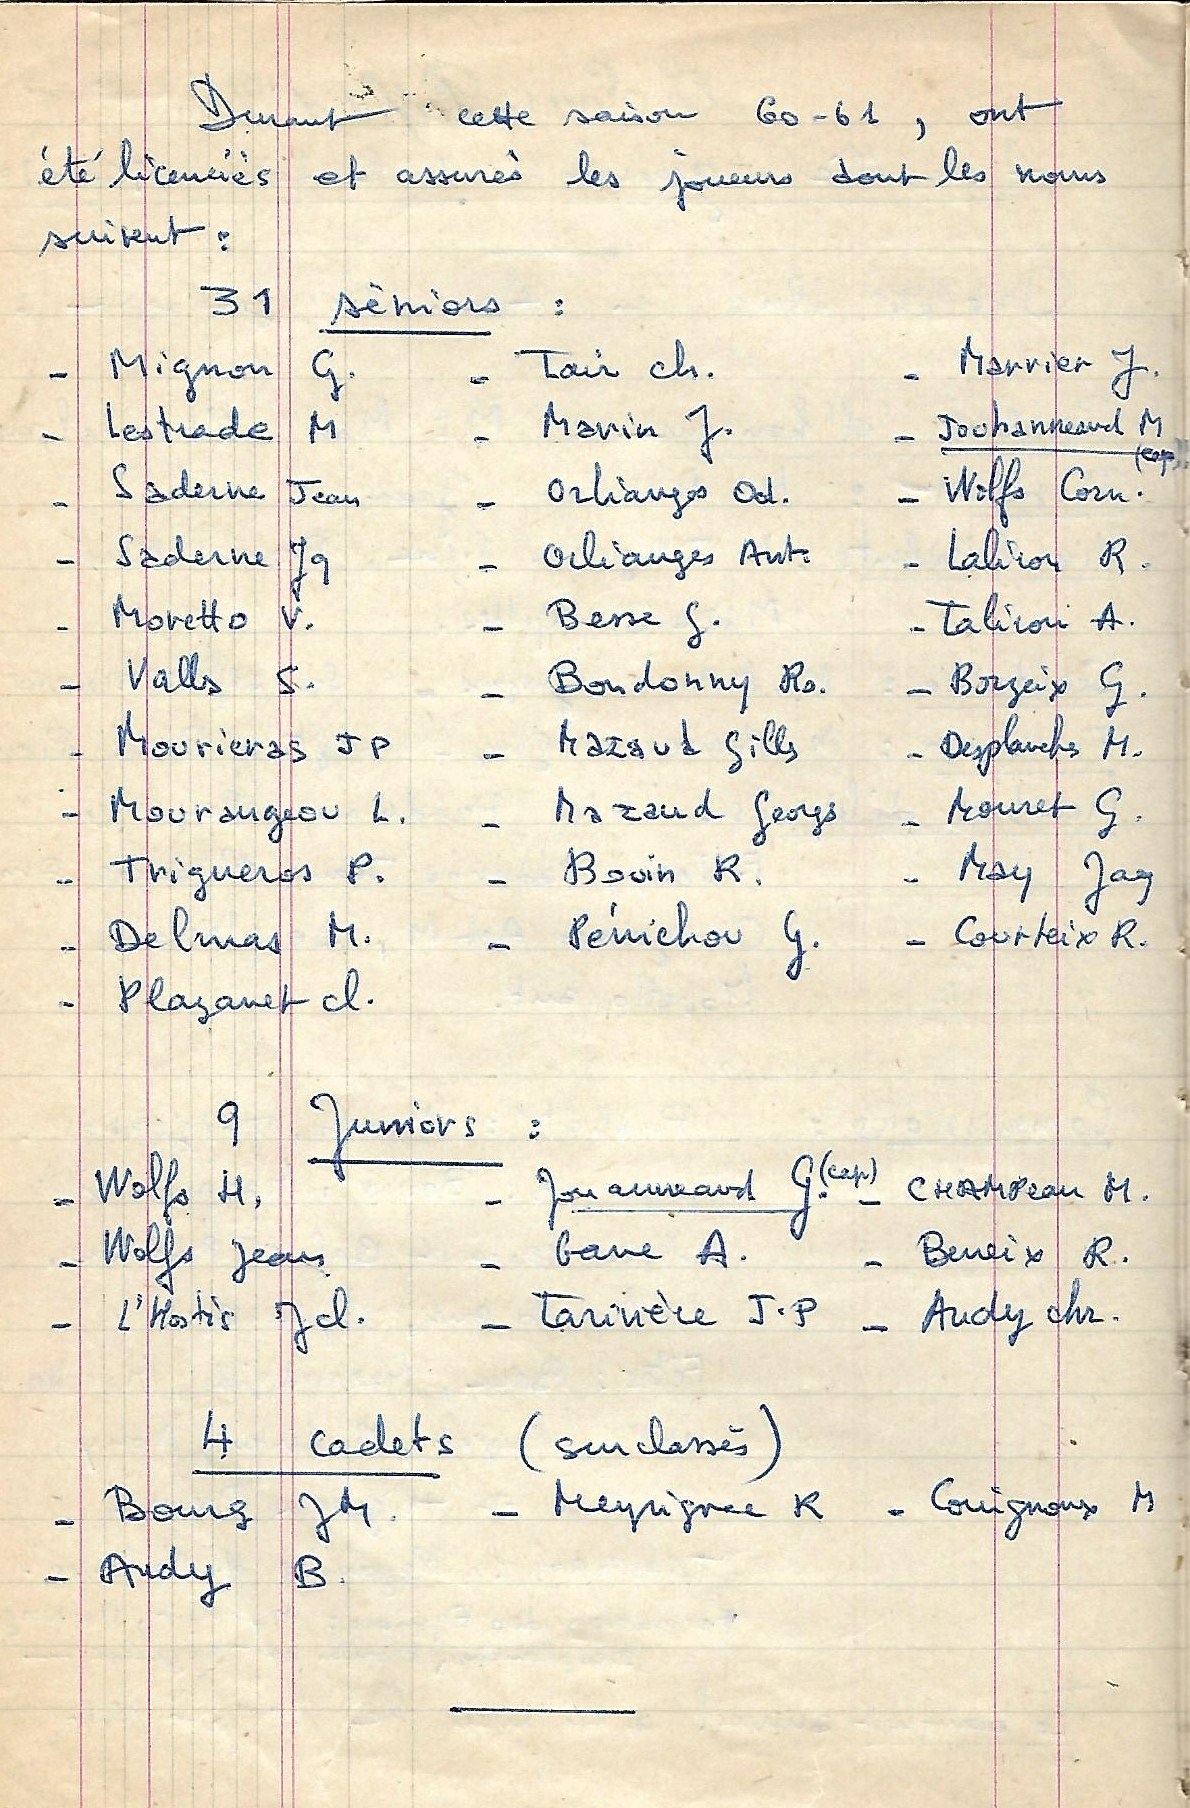 Durant cette saison 60-61, ont
été licenciés et assurés les joueurs dont les noms
suivent :
31 séniors :
- Mignon G. - Tair ch. - Marrier J.
- Lestrade M - Marin J. - Jouhanneaud M (cap)
- Saderne Jean - Orlianges Od. - Wolfs Corn.
- Saderne Jq - Orlianges Ant. - Laliron R.
- Moretto V. - Besse G. - Talicori A.
- Valls S. - Bondonny Ro. - Borzeix G.
- Mourieras JP - Mazaud Gilles - Desplanches M.
- Mourangeou L. - Mazaud Georges - Mouret G.
- Trigueros P. - Bouin R. - May Jaq
- Delmas M. - Pénichou G. - Courteix R.
- Plazanet cl.
9 Juniors :
- Wolfs H. - Jouanneaud G. (cap) - CHAMPeau M.
- Wolfs Jean - Gane A. - Beneix R.
- L'Hostis Jcl. - Tarinière J.P - Audy chr.
4 cadets (surclassés)
- Bourg JM. - Meyrignac R - Couignoux M
- Audy B.